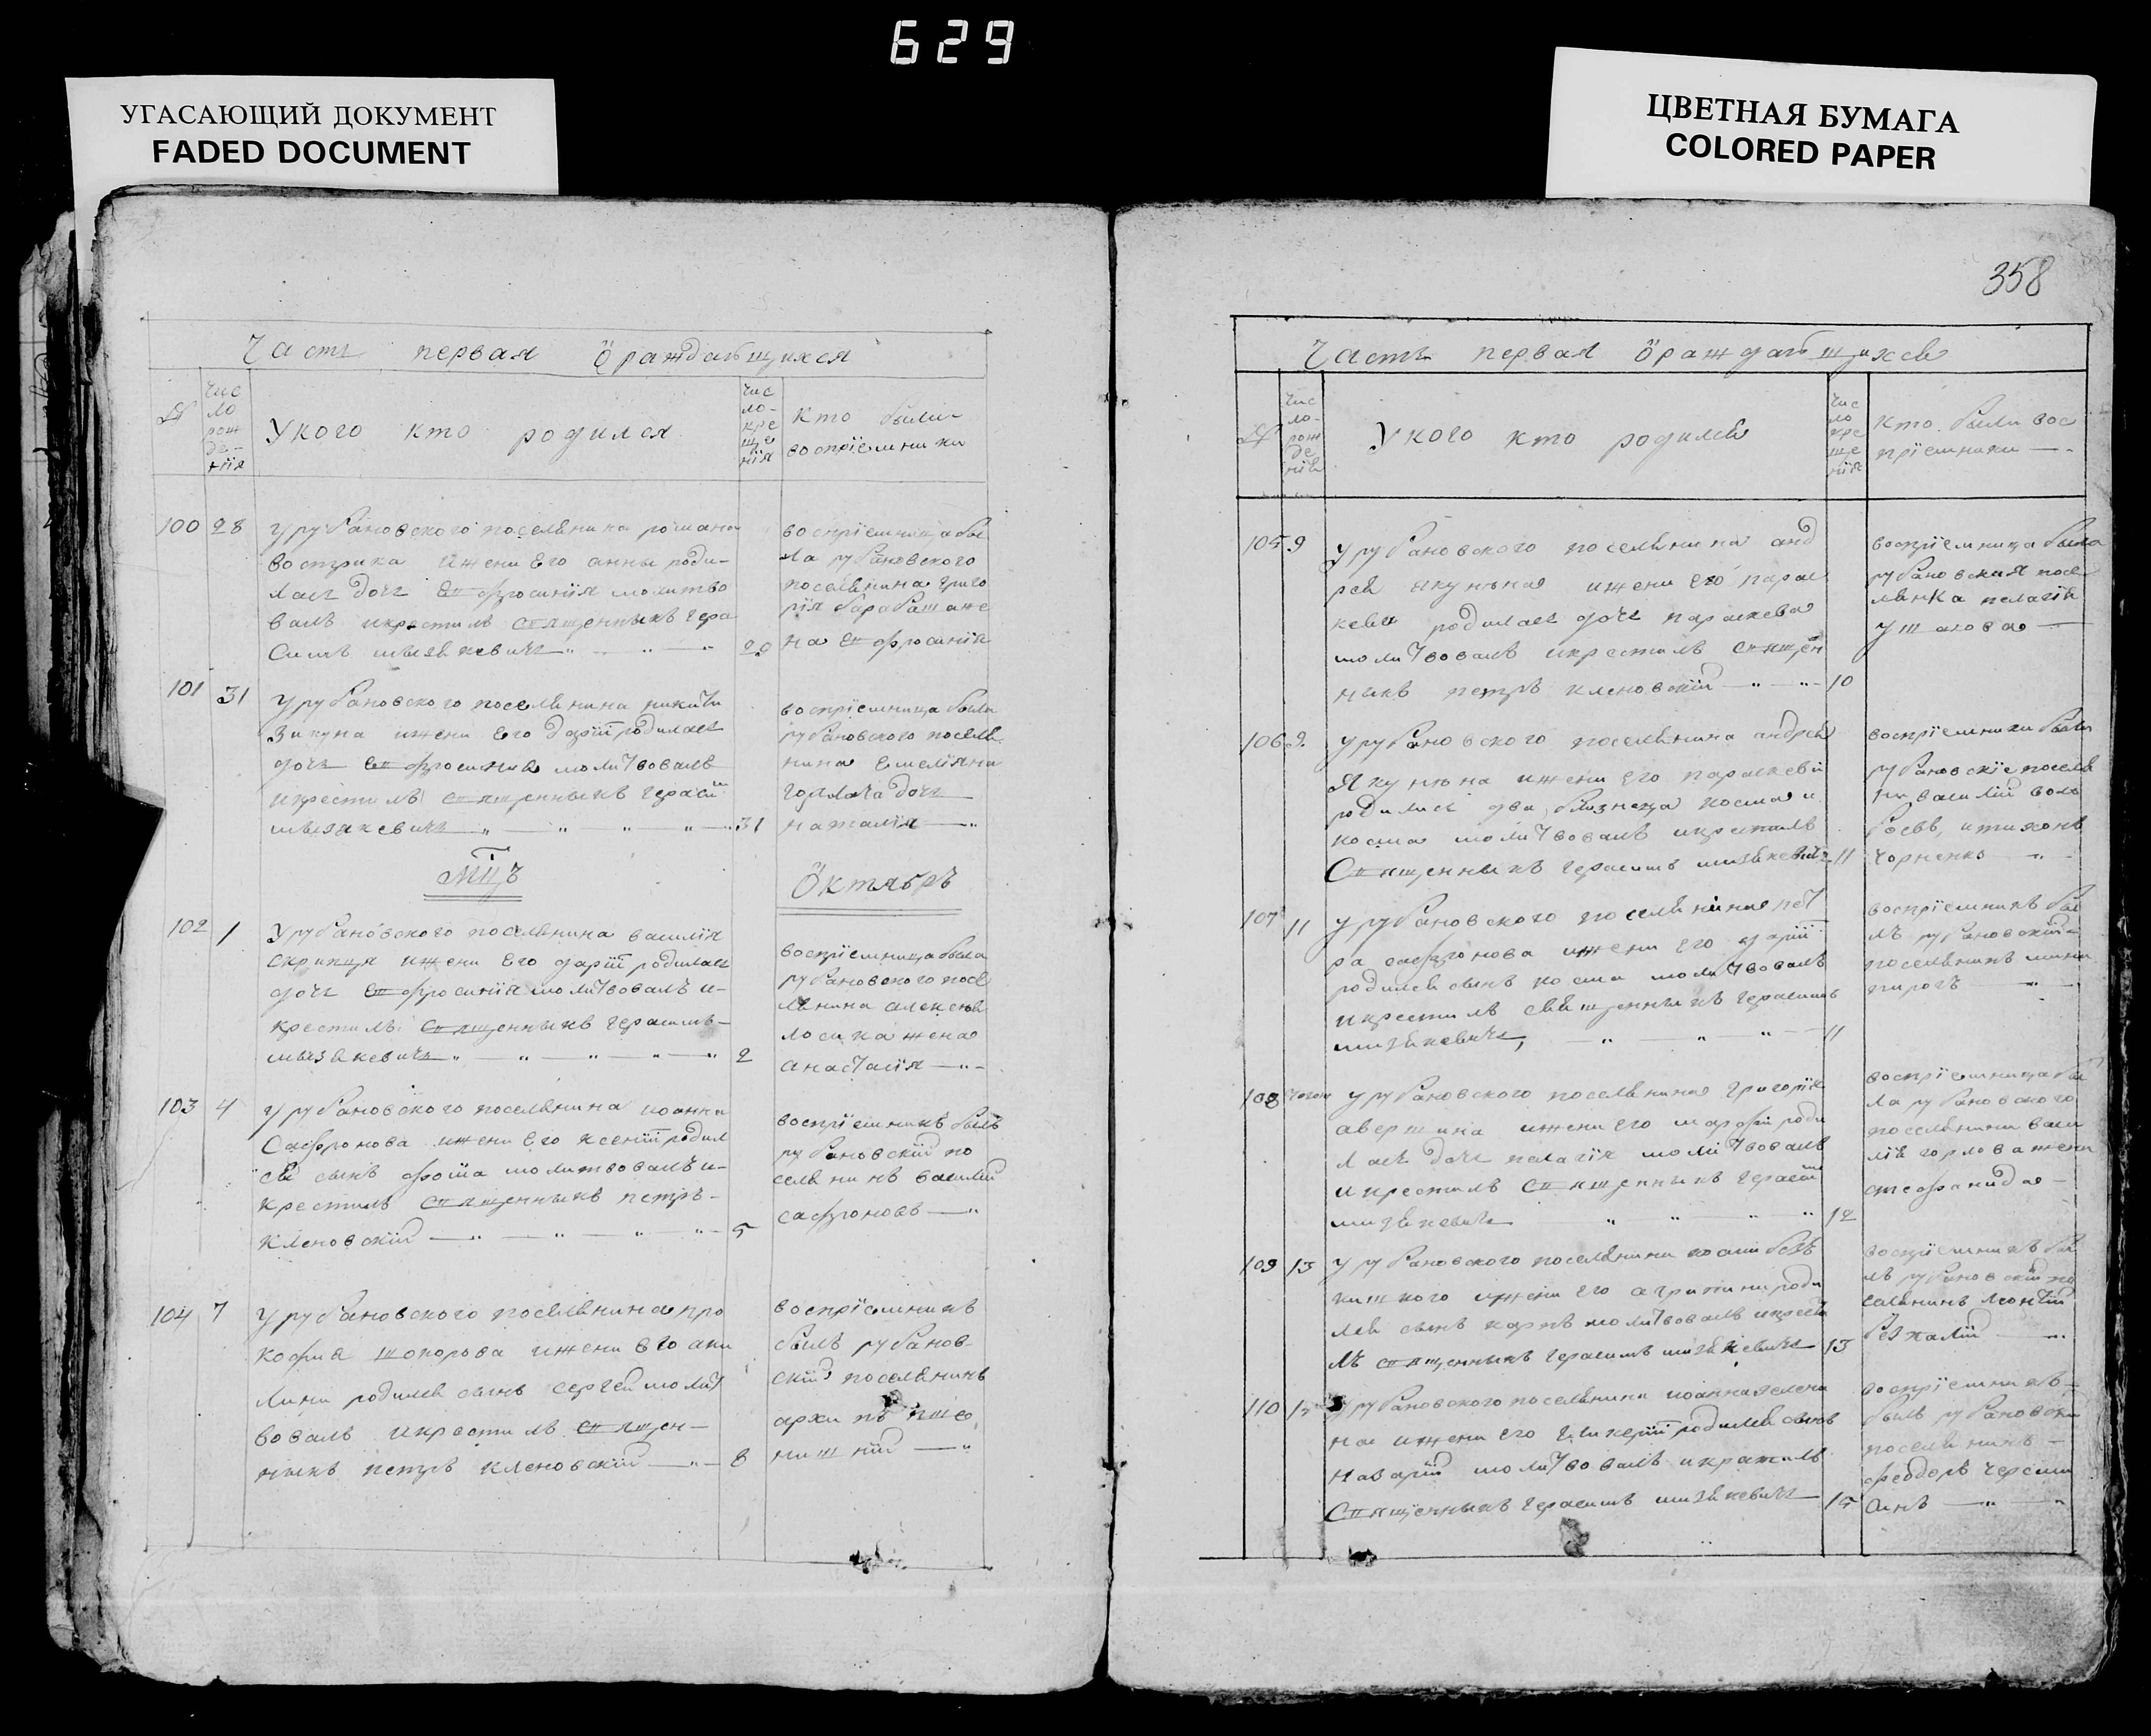 629
УГАСАЮЩИЙ ДОКУМЕНТ
FADED DOCUMENT
ЦВЕТНАЯ БУМАГА
COLORED PAPER
Часть первая ӧраждающихся
№
Чис
ло
рож
де-
нїя
У кого кто родился
Чис
ло-
кре
ще
нїя
кто были
воспрїемники
100 28
У рубановского поселянина романа
вострика и жени Его анны роди-
лась дочь Евфросинїя молитво
валъ и крестилъ священникъ Гера
симъ 29
воспрїемница бы
ла рубановского
поселянина григо
рїя барабаша же
на Евфросинїя
101 31
У рубановского поселянина никити
зикуна и жени Его дарїи родилась
дочь Евфросинїя молитвовалъ
и крестилъ священникъ Герасим
31
воспрїемница была
рубановского поселя
нина Емелїяна
дочь
наталїя
Мцъ
Ӧктябръ
102 1
У рубановского поселянина василїя
и жени Его дарїи родилась
дочь Евфросинїя молитвовалъ и-
крестилъ священникъ Герасимъ
2
воспрїемница была
рубановского посе
лянина алексея
лосика жена
анастасїя
103 4
У рубановского поселянина иоанна
Сафронова и жени Его ксенїи родил
ся сынъ фома молитвовалъ и-
крестилъ священникъ петръ-
кленовскїй 5
воспрїемникъ былъ
рубановскїй по
селянинъ василїй
сафроновъ
104 7
У рубановского поселянина про
кофия и жени его аки
лини родился сынъ сергей молит
вовалъ и крестилъ священ-
никъ петръ кленовскїй 8
воспрїемникъ
былъ рубанов-
скїй поселянинъ
архипъ пше
ничнїй
358
Часть первая ӧраждающихся
№
Чис
ло-
рож
де
нїя
У кого кто родился
Чис
ло
кре
ще
нїя
Кто были вос
прїемники
105 9
У рубановского поселянина анд
рея якунина и жени Его парас
кеви родилась дочь параскева
молитвовалъ и крестилъ священ
никъ петръ кленовскїй 10
воспрїемница была
рубановская посе
лянка пелагїя
ушакова
106 9
У рубановского поселянина андрея
Якунина и жени Его параскеви
родились два близнеца косма и
косма молитвовалъ и крестилъ
Священникъ герасимъ 11
воспрїемники были
рубановскїе поселя
ни василїй
и тихонъ
чорненко
107 11
У рубановского поселянина пет
ра сафронова и жени Его дарїи
родился сынъ косма молитвовалъ
и крестилъ священникъ герасимъ
11
воспрїемникъ бы
лъ рубановскїй
поселянинъ мина
пирогъ
108
У рубановского поселянина григорїя
авершина и жени его марфи роди
лась дочь пелагїя молитвовалъ
и крестилъ священникъ герасим
12
воспрїемница бы
ла рубановского
поселянина васи
лїя горлова жена
стефанида
109 13
У рубановского поселянина косми безъ
кишкого и жени его агрипини роди
лся сынъ карпъ молитвовалъ и крести
лъ священникъ герасимъ 13
воспрїемникъ бы
лъ рубановскїй по
селянинъ леонтїй
110
У рубановского поселянина иоанна
на и жени его гликерїи родился сынъ
назарїй молитвовалъ и крестилъ
Священникъ герасимъ
воспрїемникъ
былъ рубановскїй
поселянинъ
феодоръ